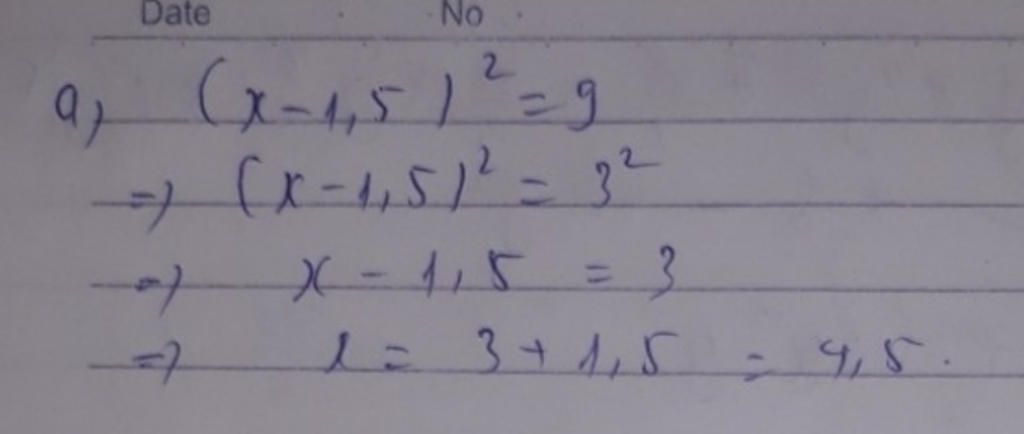 Date No.
a) (x-1,5)² = 9
=> (x-1,5)² = 3²
=> x - 1,5 = 3
=> x = 3 + 1,5 = 4,5.